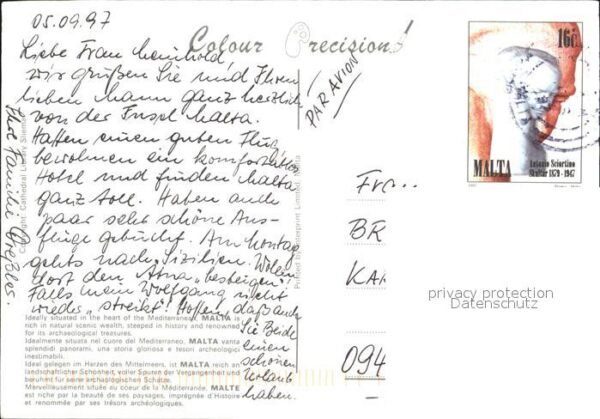 05.09.97
Colour Precision!
Liebe Frau Meinhold
wir grüßen Sie und Ihren
lieben Mann ganz herzlich
von der Insel Malta.
Hatten einen guten Flug
bewohnen ein komfortables
Hotel und finden Malta
ganz toll. Haben auch
paar sehr schöne Aus-
flüge gebucht. Am Montag
gehts nach Sizilien. Wollen
dort den Ätna besteigen!
Falls mein Wolfgang nicht
wieder „streikt“! Hoffen, daß auch
Sie Beide
einen
schönen
Urlaub
haben.
Ihre Familie
PAR AVION
16c
MALTA
Antonio Sciortino
Skultur 1879 - 1947
Fra
BR
KAR
094
privacy protection
Datenschutz
Copyright: Cathedral Library Sliema
Printed by Masterprint Limited, Malta
Ideally situated in the heart of the Mediterranean, MALTA is
rich in natural scenic wealth, steeped in history and renowned
for its archaeological treasures.
Idealmente situata nel cuore del Mediterraneo, MALTA vanta
splendidi panorami, una storia gloriosa e tesori archeologici
inestimabili.
Ideal gelegen im Herzen des Mittelmeers, ist MALTA reich an
landschaftlicher Schönheit, voller Spuren der Vergangenheit und
berühmt für seine archäologischen Schätze.
Merveilleusement située au coeur de la Méditerranée, MALTE
est riche par la beauté de ses paysages, imprégnée d'Histoire
et renommée par ses trésors archéologiques.